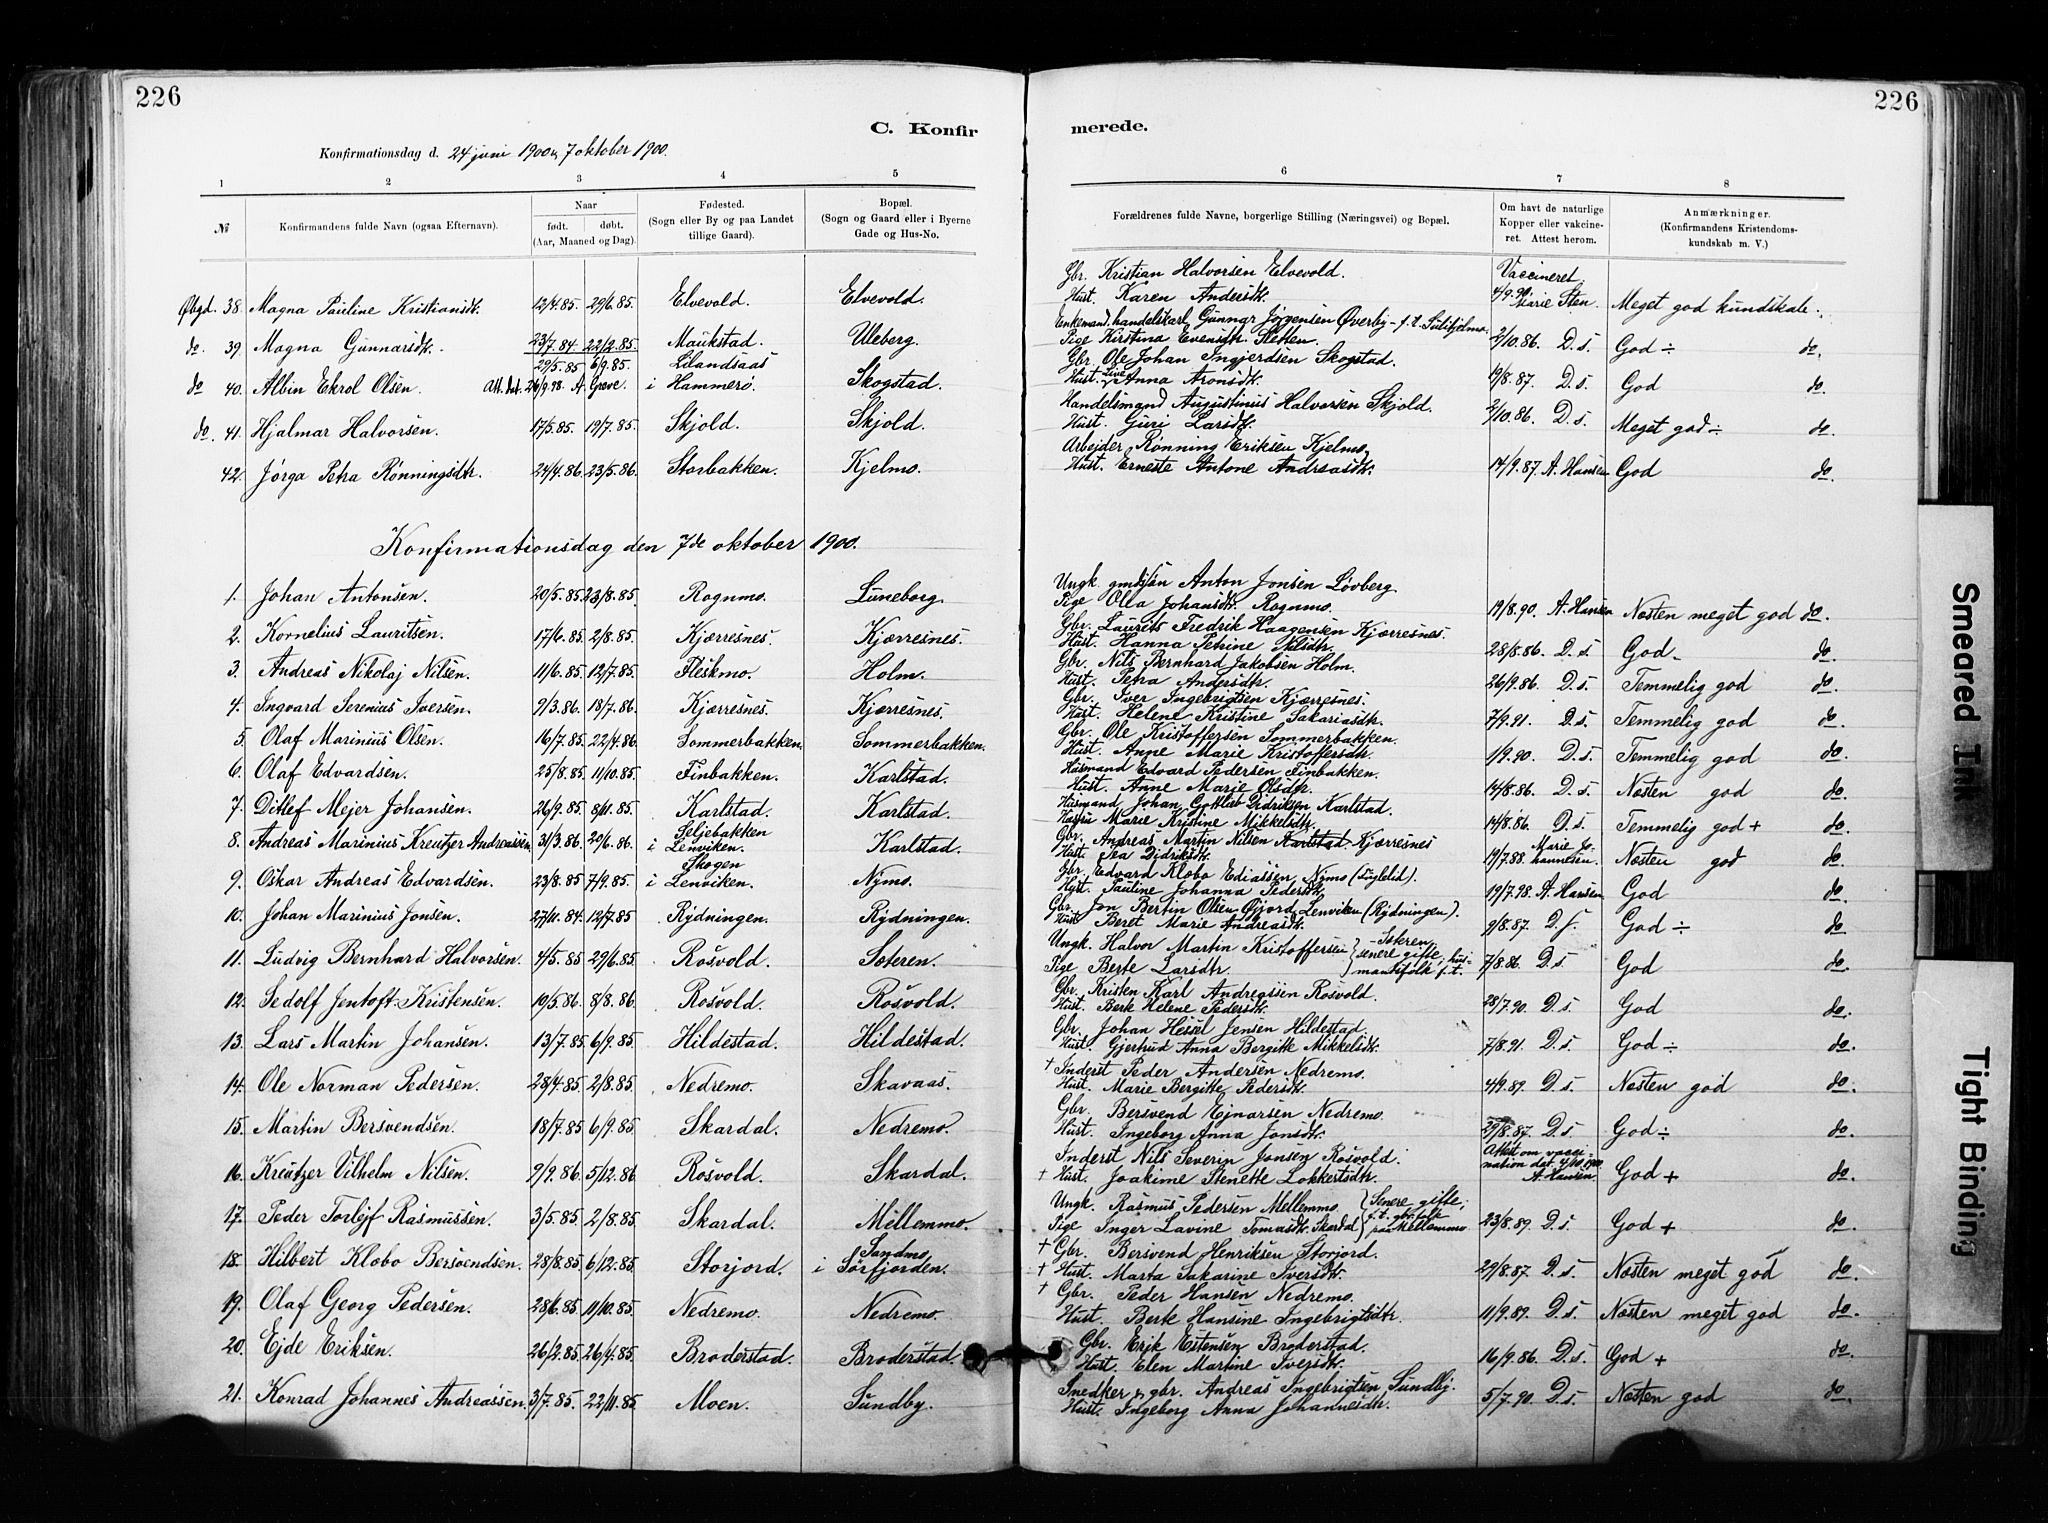 226
226
C. Konfir
merede.
Konfirmationsdag d. 24 juni 1900 & 7 oktober 1900.
1 2 3 4 5 6 7 8
№ Konfirmandens fulde Navn (ogsaa Efternavn).
Naar født. døbt. (Aar, Maaned og Dag).
Fødested. (Sogn eller By og paa Landet tillige Gaard).
Bopæl. (Sogn og Gaard eller i Byerne Gade og Hus-No.
Forældrenes fulde Navne, borgerlige Stilling (Næringsvei) og Bopæl.
Om havt de naturlige Kopper eller vakcineret. Attest herom.
Anmærkninger. (Konfirmandens Kristendomskundskab m. V.)
Øbgd. 38. Magna Pauline Kristiansdtr. 12/4.85. 29/6.85. Elvevold. Elvevold. Gbr. Kristian Halvorsen Elvevold. Hust. Karen Andersdtr. Vaccineret 4/9.90. Marie Sten. Meget god kundskab.
do. 39. Magna Gunnarsdtr. 23/7.84. 22/2.85. Maukstad. Uleberg. Enkemand, handelskarl Gunnar Jörgensen Øverby - f.t. Sulitjelma. Pige Kirstina Evensdtr. Sletten. 2/10.86. D. s. God ÷ do.
do 40. Albin Ekrol Olsen. Att. dat. 26/9.98. A. Grove. 29/5.85 6/9.85. Lilandsaas i Hammerö. Skogstad. Gbr. Ole Johan Ingjerdsen Skogstad. Hust. Live Anna Aronsdtr. 19/8.87. D. s. God do.
do. 41. Hjalmar Halvorsen. 17/5.85. 19/7.85. Skjold. Skjold. Handelsmand Augustinus Halvorsen Skjold. Hust. Guri Larsdtr. 2/10.86. D. s. Meget god ÷ do.
42. Jörga Petra Rönningsdtr. 24/4.86. 23/5.86. Storbakken. Kjelmo. Arbejder Rønning Eriksen Kjelmo, Hust. Erneste Antone Andreasdtr. 14/9.87. A. Hansen God do.
Konfirmationsdag den 7de oktober 1900.
1. Johan Antonsen. 20/5.85. 23/8.85. Rognmo. Luneborg. Ungk. gmdsön Anton Jonsen Lövberg Pige Olla Johansdtr. Rognmo. 19/8.90. A. Hansen Næsten meget god do.
2. Kornelius Lauritsen. 17/6.85. 2/8.85. Kjærresnes. Kjærresnes. Gbr. Laurits Fredrik Haagensen Kjærresnes. Hust. Hanna Petrine Nilsdtr. 28/8.86. D. s. God. do.
3. Andreas Nikolaj Nilsen. 11/6.85. 12/7.85. Fleskmo. Holm. Gbr. Nils Bernhard Jakobsen Holm. Hust. Petra Andersdtr. 26/9.86. D. s. Temmelig god do.
4. Ingvard Serenius Iversen. 9/3.86. 18/7.86. Kjærresnes. Kjærresnes. Gbr. Iver Ingebrigtsen Kjærresnes. Hust. Helene Kristine Sakariasdtr. 7/9.91. D. s. Temmelig god do.
5. Olaf Marinius Olsen. 16/7.85. 22/4.86. Sommerbakken. Sommerbakken. Gbr. Ole Kristoffersen Sommerbakken. Hust. Anne Marie Kristoffersdtr. 1/9.90. D. s. Temmelig god do.
6. Olaf Edvardsen. 25/8.85. 11/10.85. Finbakken. Karlstad. Husmand Edvard Pedersen Finbakken. Hust. Anne Marie Olsdtr. 14/8.86. D. s. Næsten god do.
7. Ditlef Mejer Johansen. 26/9.85. 8/11.85. Karlstad. Karlstad. Husmand Johan Gottlieb Didriksen Karlstad. Hustru Marie Kristine Mikkelsdtr. 14/8.86. D. s. Temmelig god + do.
8. Andreas Marinius Kreutzer Andreassen. 31/3.86. 20/6.86. Seljebakken i Lenviken. Karlstad. Gbr. Andreas Martin Nilsen Karlstad Kjærresnes Hust. Lea Didriksdtr. 19/7.88. Marie Johannesen. Næsten god do.
9. Oskar Andreas Edvardsen. 23/8.85 7/9.85. Skogen i Lenviken. Nymo. Gbr. Edvard Klobo Ediassen Nymo (Fuglelid). Hust. Pauline Johanna Pedersdtr. 19/7.98. A. Hansen. God do.
10. Johan Marinius Jonsen. 27/11.84. 12/7.85 Rydningen. Rydningen. Gbr. Jon Bertin Olsen Øijord, Lenviken (Rydningen). Hust. Beret Marie Andreasdtr. 9/8.87. D. s. God ÷ do
11. Ludvig Bernhard Halvorsen. 4/5.85 29/6.85. Rosvold. Soteren. Ungk. Halvor Martin Kristoffersen Pige Berte Larsdtr. - Soteren, senere gifte; husmandsfolk f.t. 7/8.86. D. s. God do.
12. Sedolf Jentoft Kristensen. 19/5.86. 8/8.86. Rosvold. Rosvold. Gbr. Kristen Karl Andreassen Rosvold. Hust. Berk Helene Pedersdtr. 28/7.90. D. s. God do.
13. Lars Martin Johansen. 13/7.85 6/9.85. Hildestad. Hildestad. Gbr. Johan Hessel Jensen Hildestad. Hust. Gjertrud Anna Bergitte Mikkelsdtr. 7/8.91. D. s. God ÷ do.
14. Ole Norman Pedersen. 28/4.85. 2/8.85. Nedremo. Skavaas. † Inderst Peder Andersen Nedremo. Hust. Marie Bergitte Pedersdtr. 4/9.89. D. s. Næsten god do.
15. Martin Bersvendsen. 18/7.85 6/9.85. Skardal. Nedremo. Gbr. Bersvend Ejnarsen Nedremo. Hust. Ingeborg Anna Jonsdtr. 29/8.87. D. s. God ÷ do.
16. Kreutzer Vilhelm Nilsen. 9/9.86. 5/12.86 Rosvold. Skardal. Inderst Nils Severin Jonsen Rosvold. † Hust. Joakime Stenette Lokkertsdtr. Attest om vaccination dat. 4/10.1900. A. Hansen God + do.
17. Peder Torlejf Rasmussen. 3/5.85. 2/8.85. Skardal. Mellemmo. Ungk. Rasmus Pedersen Mellemmo. Pige Inger Lavine Tomasdtr. Skardal Senere gifte; f.t. gbr.folk paa Mellemmo 23/8.89. D. s. God + do.
18. Hilbert Klobo Bersvendsen. 28/8.85 6/12.85. Storjord. Sandmo i Sörfjorden. † Gbr. Bersvend Henriksen Storjord. † Hust. Marta Sakarine Iversdtr. 29/8.87. D. s. Næsten meget god do.
19. Olaf Georg Pedersen. 28/6.85 11/10.85. Nedremo. Nedremo. † Gbr. Peder Hansen Nedremo. Hust. Berte Hansine Ingebrigtsdtr. 11/9.89. D. s. Næsten meget god do.
20. Ejde Eriksen. 26/2.85. 26/4.85. Broderstad. Broderstad. Gbr. Erik Estensen Broderstad. Hust. Elen Martine Iversdtr. 16/9.86. D. s. God + do.
21. Konrad Johannes Andreassen. 3/7.85. 22/11.85 Moen. Sundby. Snedker & gbr. Andreas Ingebrigtsen Sundby. Hust. Ingeborg Anna Johannesdtr. 5/7.90. D. s. Næsten god do.
Smeared Ink
Tight Binding